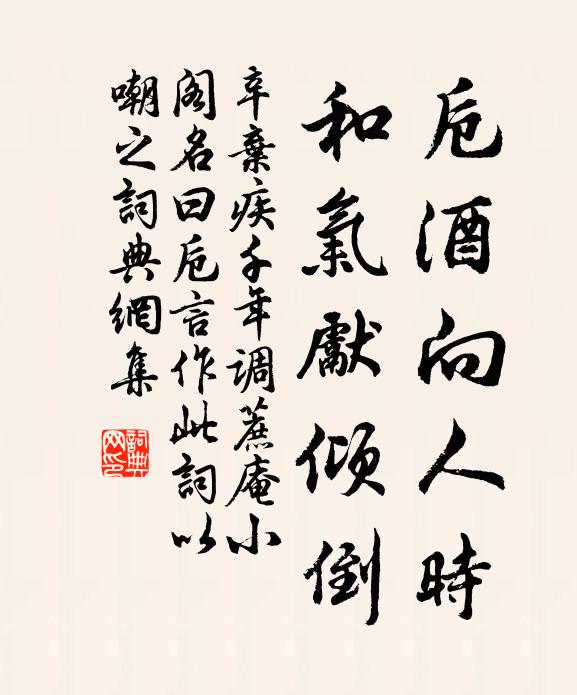 卮酒向人時
和氣獻傾倒
辛棄疾千年調蔗庵小
閣名曰卮言作此詞以
嘲之詞典網集
詞典
网印